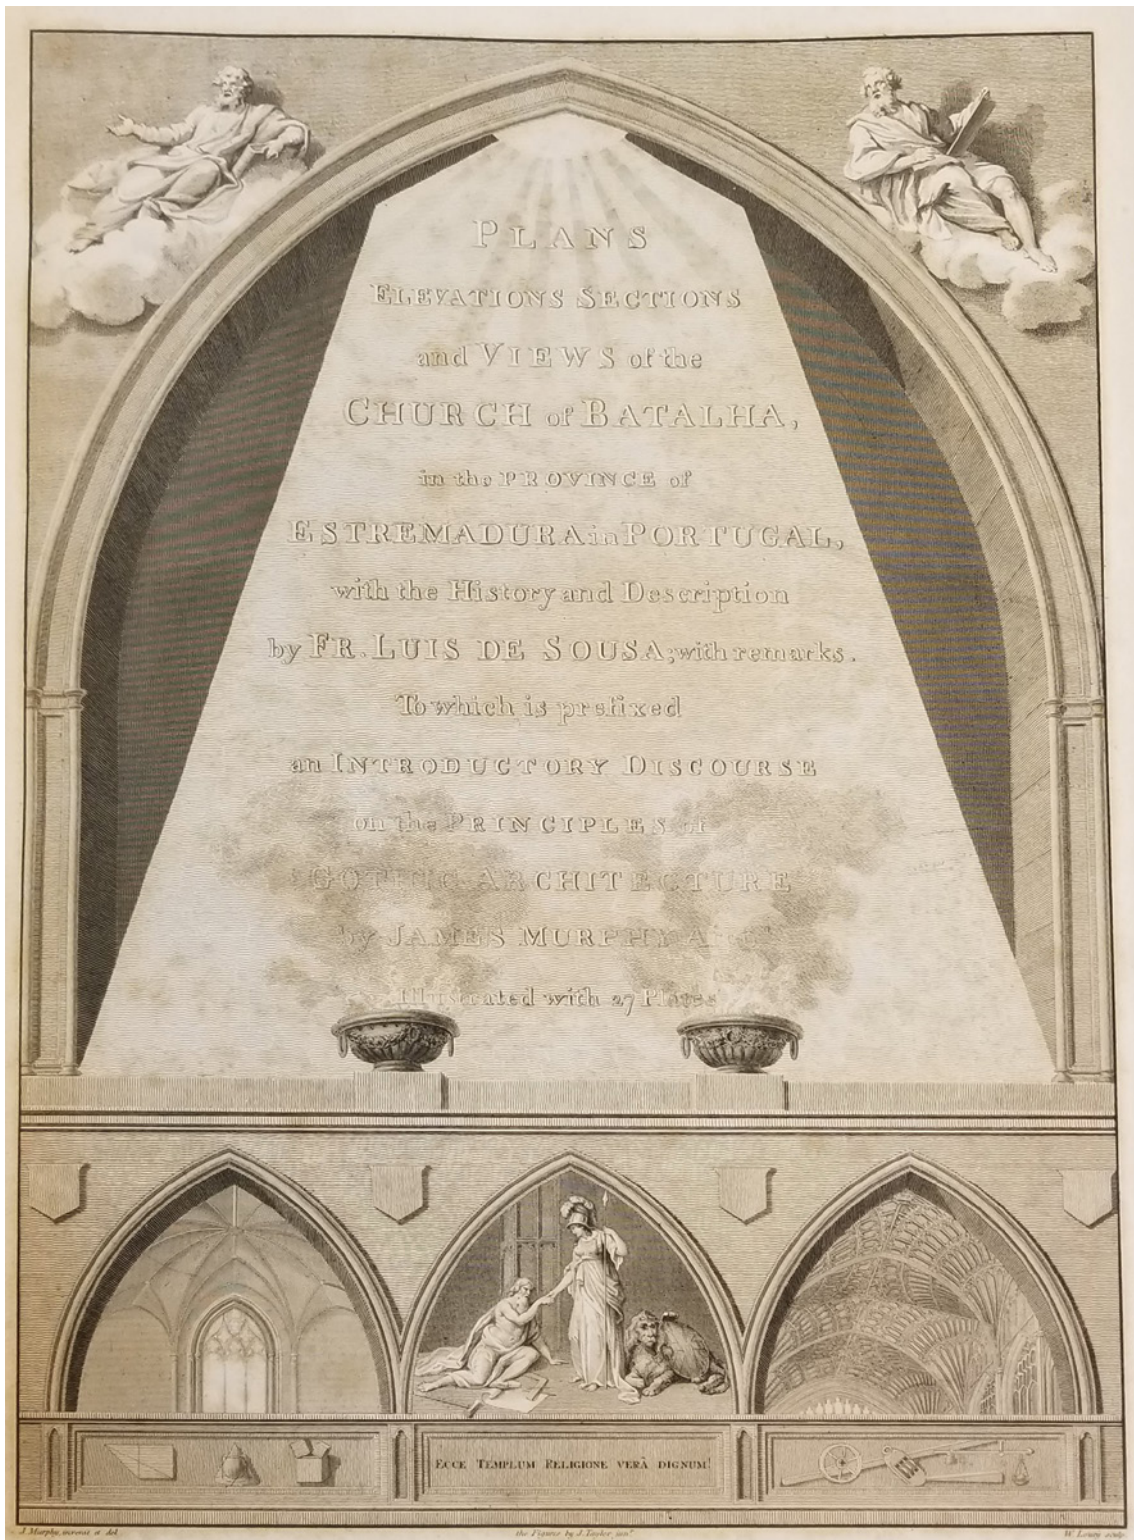 PLANS
ELEVATIONS SECTIONS
and VIEWS of the
CHURCH of BATALHA,
in the PROVINCE of
ESTREMADURA in PORTUGAL,
with the History and Description
by FR. LUIS DE SOUSA; with remarks.
To which is prefixed
an INTRODUCTORY DISCOURSE
on the PRINCIPLES of
GOTHIC ARCHITECTURE
by JAMES MURPHY ARCHt
Illustrated with 27 Plates
ECCE TEMPLUM RELIGIONE VERÂ DIGNUM!
J. Murphy, invenit et del.
the Figures by J. Taylor junr.
W. Lowry sculp.